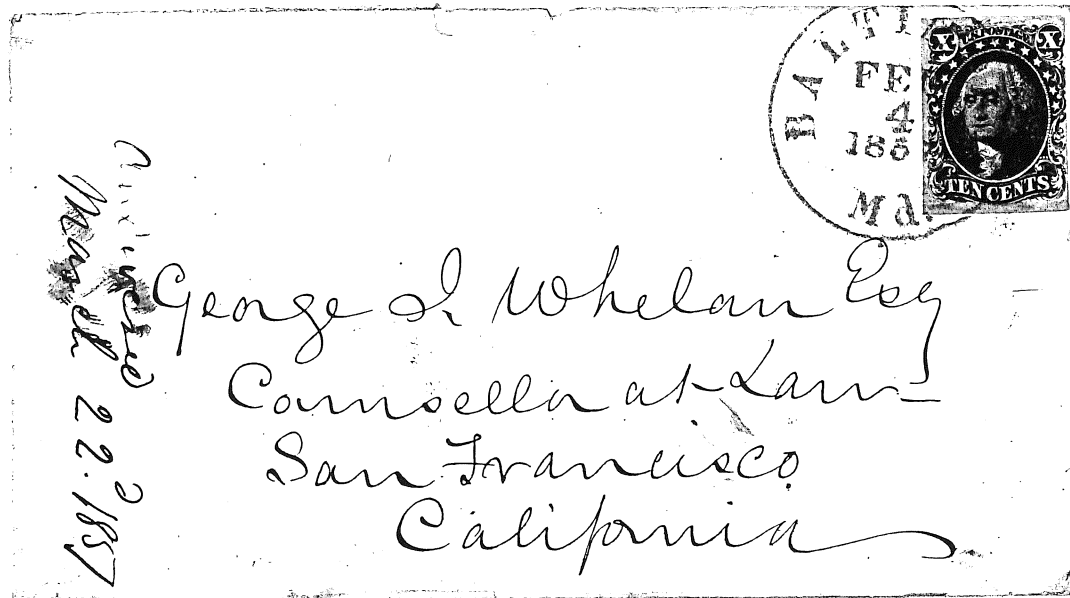 BALTI
FE
4
185
Md.
X U.S. POSTAGE X
TEN CENTS
George J. Whelan Esq
Counsellor at Law
San Francisco
California
March 22d. 1857